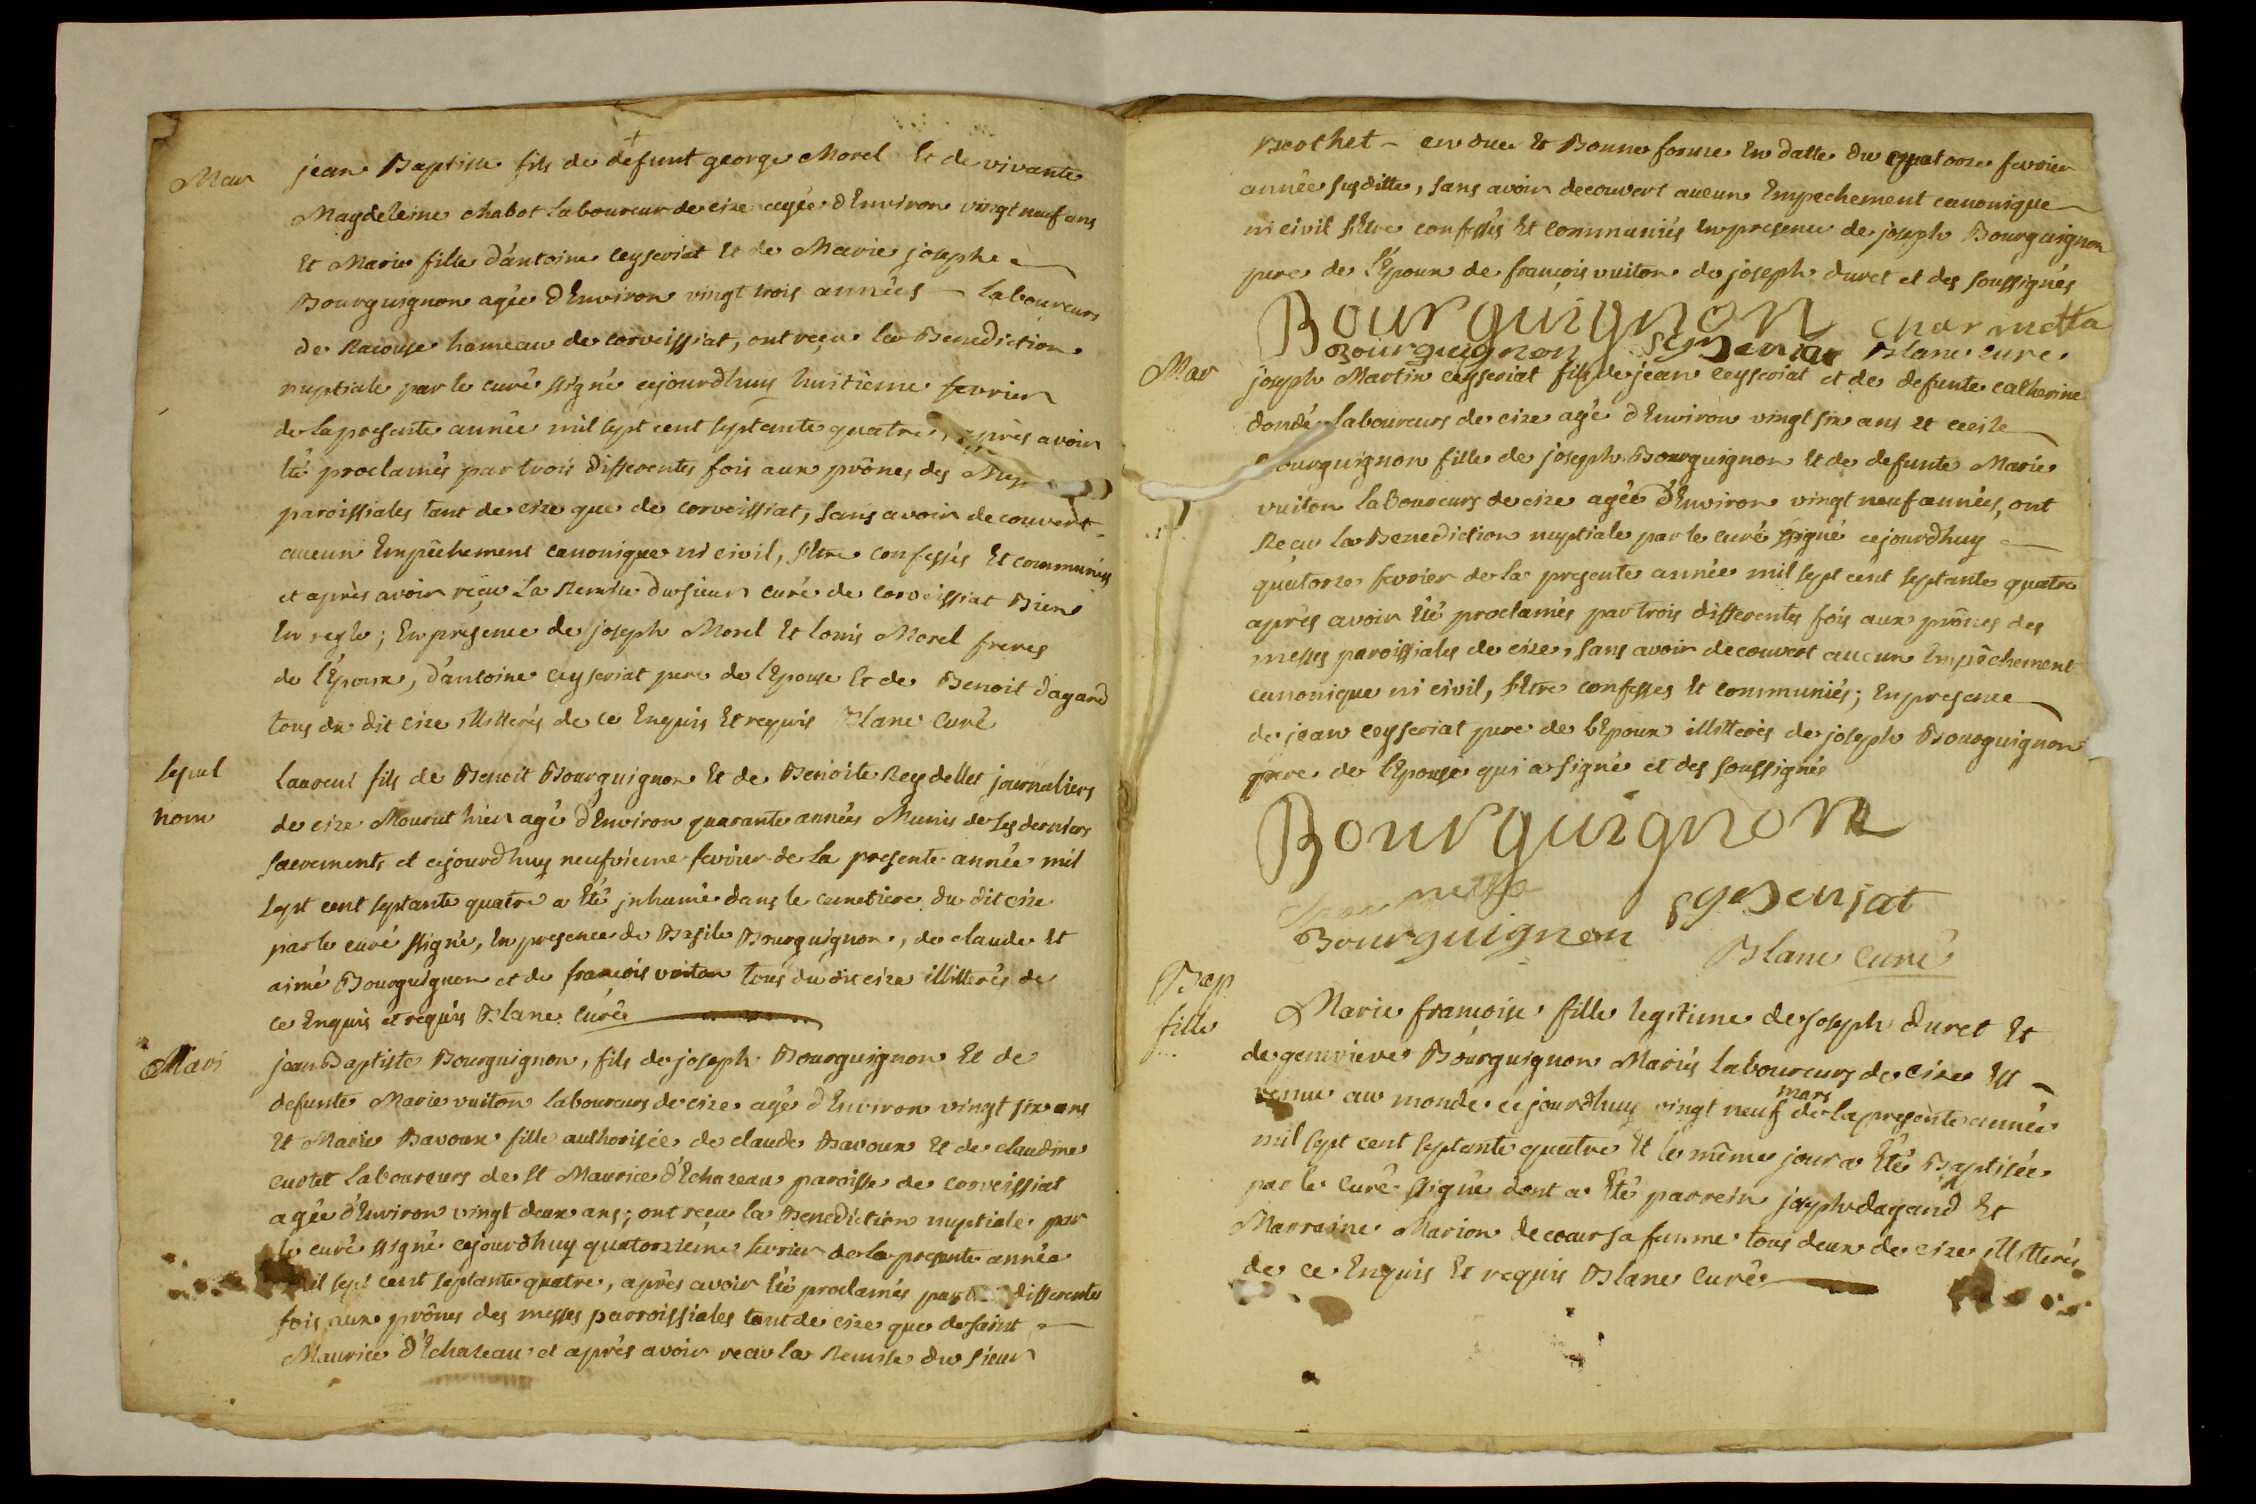 Mar
jean Baptiste fils de defunt george Morel Et de vivante
Magdeleine chabot laboureur de cize agée d'Environ vingt neuf ans
Et Marie fille d'antoine ceyseriat Et de Marie josephe
Bourguignon agée d'Environ vingt trois années – laboureurs
de Racouse hameau de corveissiat, ont reçu la Benediction
nuptiale par le curé ssigné cejourdhuy huitième fevrier
de la presente année mil sept cent septante quatre, après avoir
Eté proclamés par trois differentes fois aux prônes des
paroissiales tant de cize que de corveissiat, sans avoir decouvert
aucun Empêchement canonique ni civil, s'Etre confessés Et communiés
et après avoir reçu La Remise du sieur curé de corveissiat Bien
En regle; En presence de joseph Morel Et louis Morel freres
de l'Epoux, d'antoine ceyseriat pere de l'Epouse Et de Benoit dagand
tous du dit cize illitterés de ce Enquis Et requis Blanc Curé
sepul
hom
laurent fils de Benoit Bourguignon Et de Benoite Reydellet journaliers
de cize Mourut hier agé d'Environ quarante années Munis de ses derniers
sacrements et cejourdhuy neufvieme fevrier de la presente année mil
sept cent septante quatre a Eté jnhumé dans le cimetiere du dit cize
par le curé ssigné, En presence de Basile Bourguignon, de claude Et
aimé Bourguignon et de françois vuiton tous du dit cize illitterés de
ce Enquis et requis Blanc Curé
Mari
jean Baptiste Bourguignon, fils de joseph Bourguignon Et de
defunte Marie vuiton laboureurs de cize agé d'Environ vingt six ans
Et Marie Bavoux fille authorisée de claude Bavoux Et de claudine
cudet laboureurs de St Maurice d'Echazeau paroisse de corveissiat
agée d'Environ vingt deux ans; ont reçu la Benediction nuptiale par
le curé ssigné cejourdhuy quatorzieme fevrier de la presente année
mil sept cent septante quatre, après avoir Eté proclamés par differentes
fois aux prônes des messes parroissiales tant de cize que de saint
Maurice d'Echazeau et après avoir reçu la Remise du sieur
Brochet – en due Et Bonne forme En datte du quatorze fevrier
année susditte, sans avoir decouvert aucun Empechement canonique
ni civil s'Etre confessés Et communiés En presence de joseph Bourguignon
pere de l'Epoux de françois vuiton de joseph duret et des soussignés
Bourguignon charmetta
Bourguignon Blanc curé
Mar
joseph Martin ceyseriat fils de jean ceyseriat et de defunte catherine
dondé laboureurs de cize agé d'Environ vingt six ans et cecile
Bourguignon fille de joseph Bourguignon Et de defunte Marie
vuiton laboureurs de cize agée d'Environ vingt neuf années, ont
Reçu la Benediction nuptiale par le curé ssigné cejourdhuy
quatorze fevrier de la presente année mil sept cent septante quatre
après avoir Eté proclamés par trois differentes fois aux prônes des
messes paroissiales de cize, sans avoir decouvert aucun Empêchement
canonique ni civil, s'Etre confesses Et communiés; En presence
de jean ceyseriat pere de l'Epoux illitterés de joseph Bourguignon
pere de l'Epouse qui a signé et des soussignés
Bourguignon
Bourguignon
Blanc Curé
Bap
fille
Marie françoise fille legitime de joseph duret Et
de genevieve Bourguignon Mariés laboureurs de cize Est
venue au monde cejourdhuy vingt neuf mars de la presente année
mil sept cent septante quatre Et le même jour a Eté Baptisée
par le Curé ssigné dont a Eté parrein joseph dagand Et
Marraine Marion decoeur sa femme tous deux de cize illitterés
de ce Enquis Et requis Blanc Curé